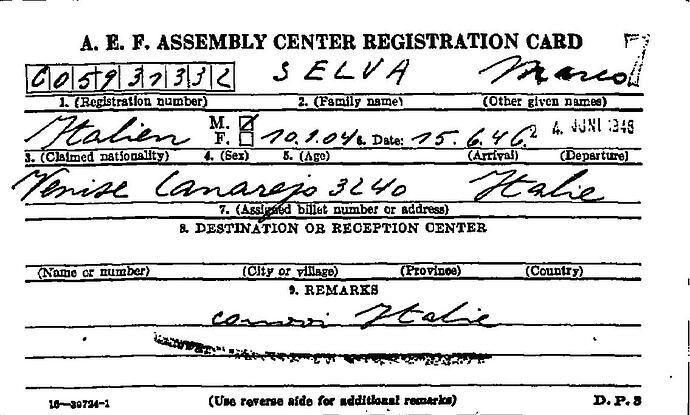 A. E. F. ASSEMBLY CENTER REGISTRATION CARD
C05937332 SELVA Marco
1. (Registration number) 2. (Family name) (Other given names)
Italien M. F. 10.1.04 6. Date: 15.6.46. 24. JUNI 1946
3. (Claimed nationality) 4. (Sex) 5. (Age) (Arrival) (Departure)
Venise Canarejo 3240 Italie
7. (Assigned billet number or address)
8. DESTINATION OR RECEPTION CENTER
(Name or number) (City or village) (Province) (Country)
9. REMARKS
Italie
16—39724-1 (Use reverse side for additional remarks) D.P. 3